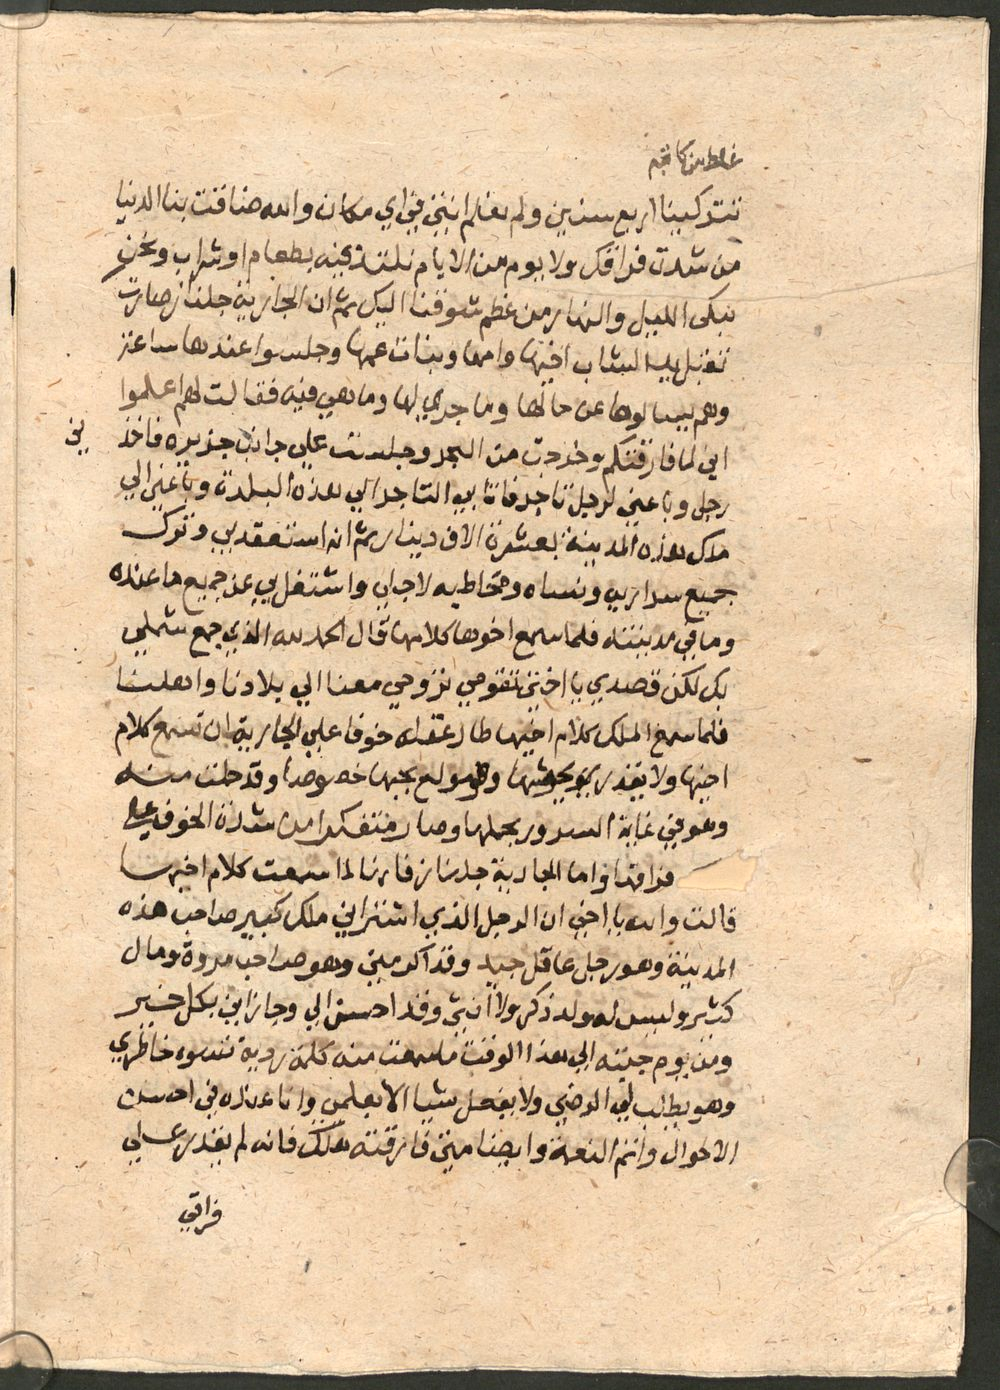 غلط من كاتبه
تتركينا اربع سنين ولم نعلم انتي في اي مكان والله ضاقت بنا الدنيا
من شدت فراقك ولا يوم من الايام نلتذ فيه بطعام او شراب ونحن
نبكي الليل والنهار من عظم شوقنا اليك ثم ان الجارية جلناز صارت
تقبل يد الشاب اخيها وامها وبنات عمها وجلسوا عندها ساعة
وهم يسالوها عن حالها وما جري لها وما هي فيه فقالت لهم اعلموا
اني لما فارقتكم وخرجت من البحر وجلست علي جانب جزيره فاخذ
ني
رجل وباعني لرجل تاجر فاتا بي التاجر الي هذه البلدة وباعني الي
ملك هذه المدينة بعشرة الاف دينار ثم انه استعقد بي وترك
جميع سراريه ونساه ومحاظيه لاجلي واشتغل بي عن جميع ما عنده
وما في مدينته فلما سمع اخوها كلامها قال الحمد لله الذي جمع شملي
بك لكن قصدي يا اختي تقومي تروحي معنا الي بلادنا واهلنا
فلما سمع الملك كلام اخيها طار عقله خوفا علي الجارية ان تسمع كلام
اخيها ولا يقدر يحوشها وهو مولع بحبها خصوصا وقد حملت منه
وهو في غاية السرور بحملها وصار متفكرا من شدة الخوف علي
فراقها واما الجارية جلناز فانها لما سمعت كلام اخيها
قالت والله يا اخي ان الرجل الذي اشتراني ملك كبير صاحب هذه
المدينة وهو رجل عاقل جيد وقد اكرمني وهو صاحب مروة ومال
كثير وليس له ولد ذكر ولا انثي وقد احسن الي وجازاني بكل خير
ومن يوم جيته الي هذا الوقت ما سمعت منه كلمة ردية تسوه خاطري
وهو يطلب لي الرضي ولا يفعل شيا الا بعلمي وانا عنده في احسن
الاحوال واتم النعمة وايضا متي فارقته هلك فانه لم يقدر علي
فراقي